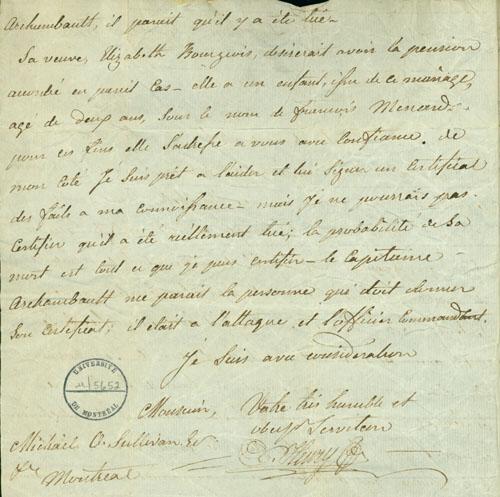 Archambault, il parait qu'il y a été tué—
Sa veuve, Elizabeth Bourgeois, desirerait avoir la pension
accordée en pareil Cas— elle a un enfant, issu de ce mariage,
agé de deux ans, sous le nom de francois Menard—
pour ces fins elle S'adresse a vous avec Confiance. de
mon Coté Je Suis prêt a l'aider et lui Signer un Certificat
des faits a ma connoissance— mais Je ne pourrais pas
Certifier qu'il a été réellement tué; la probabilité de Sa
mort est tout ce que je puis certifier— le Capitaine
Archambault me parait la personne qui doit donner
Son Certificat; il était a l'attaque et l'officier Commandant.
Je Suis avec considération
Monsieur, Votre très humble et
obeisst Serviteur
Michael O Sullivan Esr
Montreal
UNIVERSITÉ
5652
DE MONTRÉAL